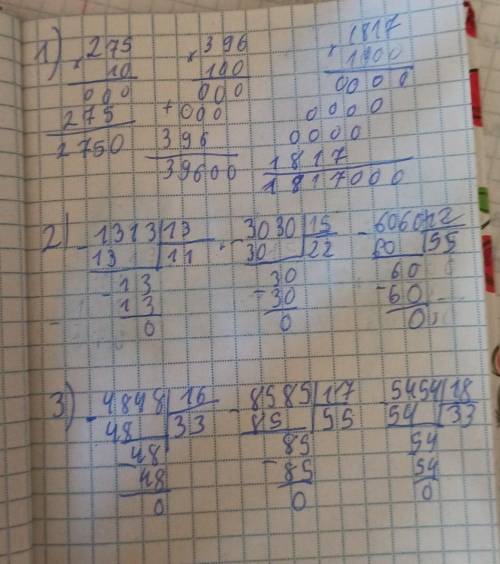 1) × 275 × 396 × 1817
10 100 1000
000 000 0000
275 + 000 0000
2750 396 0000
39600 1817
1817000
2) - 1313 | 13 - 3030 | 15 - 6060 | 12
13 | 11 30 | 22 60 | 55
- 13 - 30 - 60
13 30 60
0 0 0
3) - 4848 | 16 - 8585 | 17 - 5454 | 18
48 | 33 85 | 55 54 | 33
- 48 - 85 54
48 85 54
0 0 0